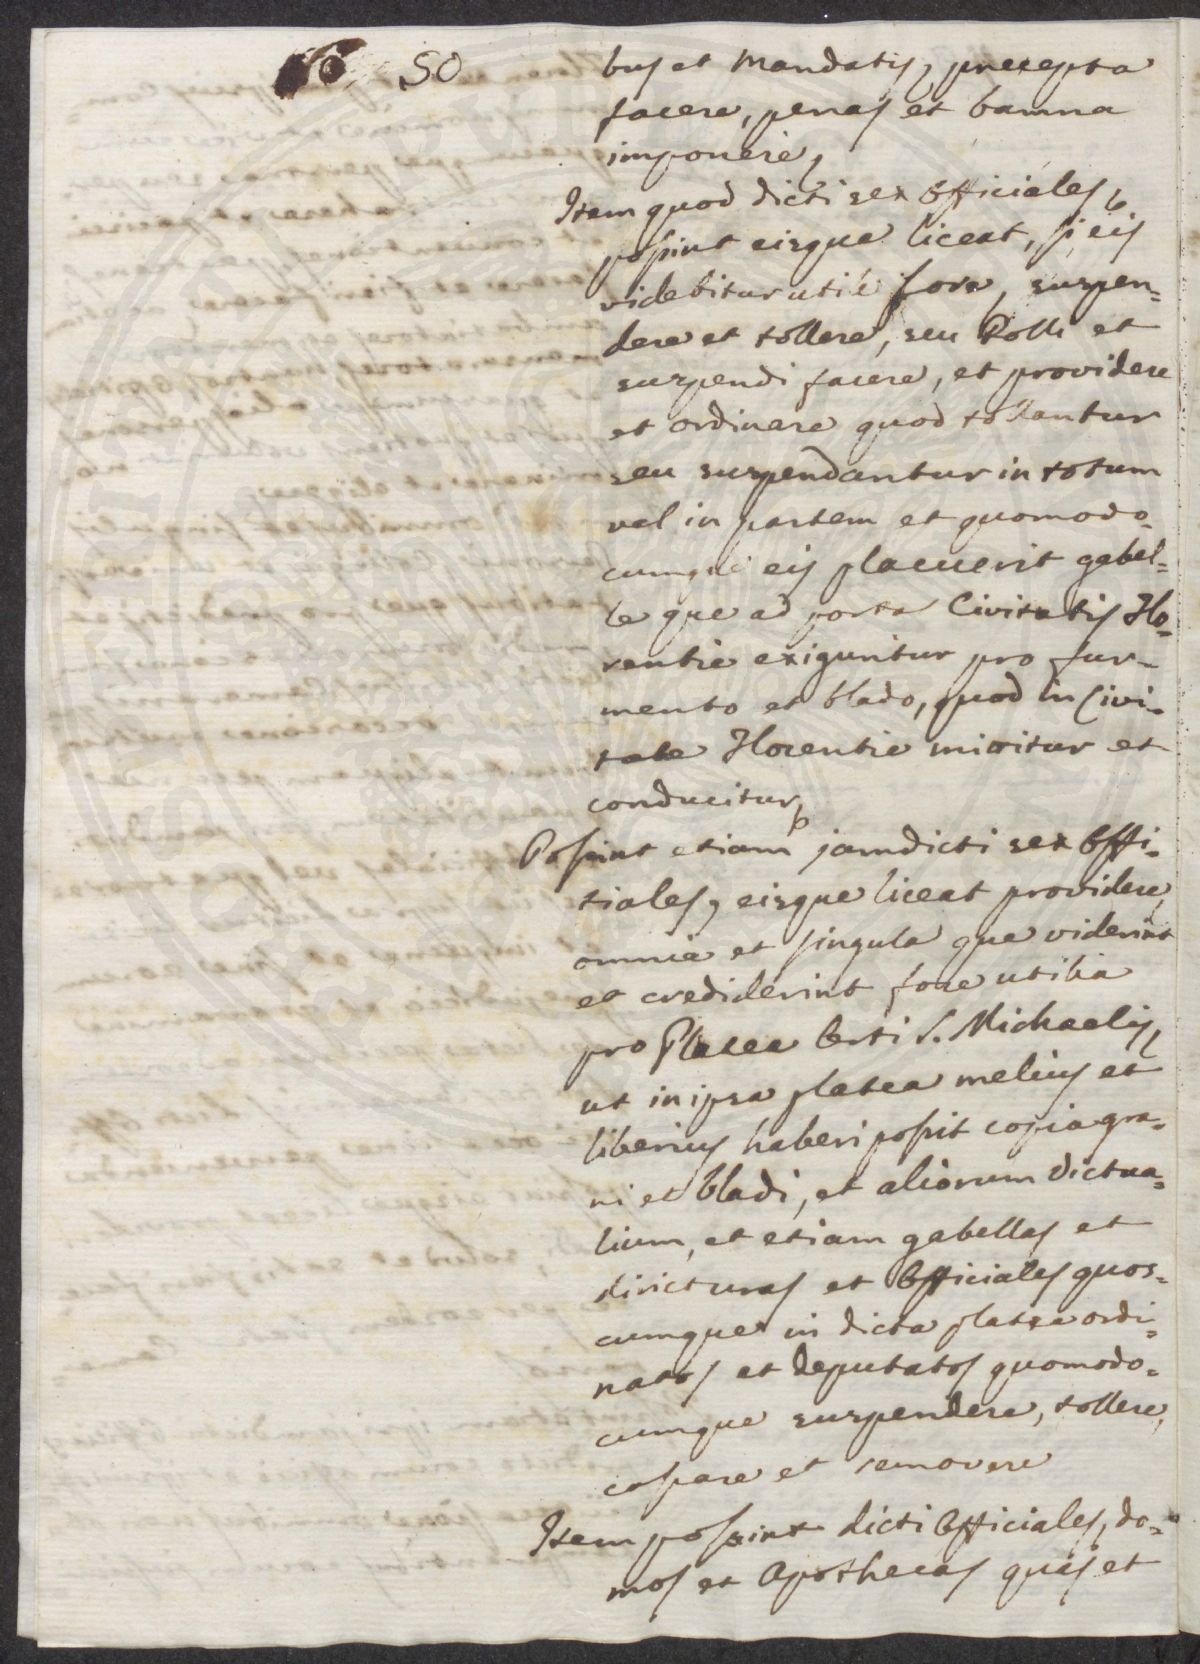 50
bus et Mandatis, precepta
facere, penas et bamna
imponere,
Item quod dicti sex Officiales,
possint eisque liceat, si eis
videbitur utile fore, suspen=
dere et tollere, seu Tolli et
suspendi facere, et providere
et ordinare quod tollantur
seu suspendantur in totum
vel in partem et quomodo=
cumque eis placuerit gabel=
le que ad portas Civitatis Flo=
rentie exiguntur pro fur=
mento et blado, quod in Civi=
tate Florentie mittitur et
conducitur,
Possint etiam jamdicti sex Offi=
tiales, eisque liceat providere,
omnia et singula que viderint
et crediderint fore utilia
pro Platea Orti S. Michaelis,
ut in ipsa platea melius et
liberius haberi possit copia gra=
ni et bladi, et aliorum victua=
lium, et etiam gabellas et
diricturas et Officiales quos=
cumque in dicta platea ordi=
natos et deputatos quomodo=
cumque suspendere, tollere,
cassare et removere
Item possint dicti Officiales, do=
mos et Apothecas quas et